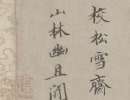 校松雪齋
山林幽且閒